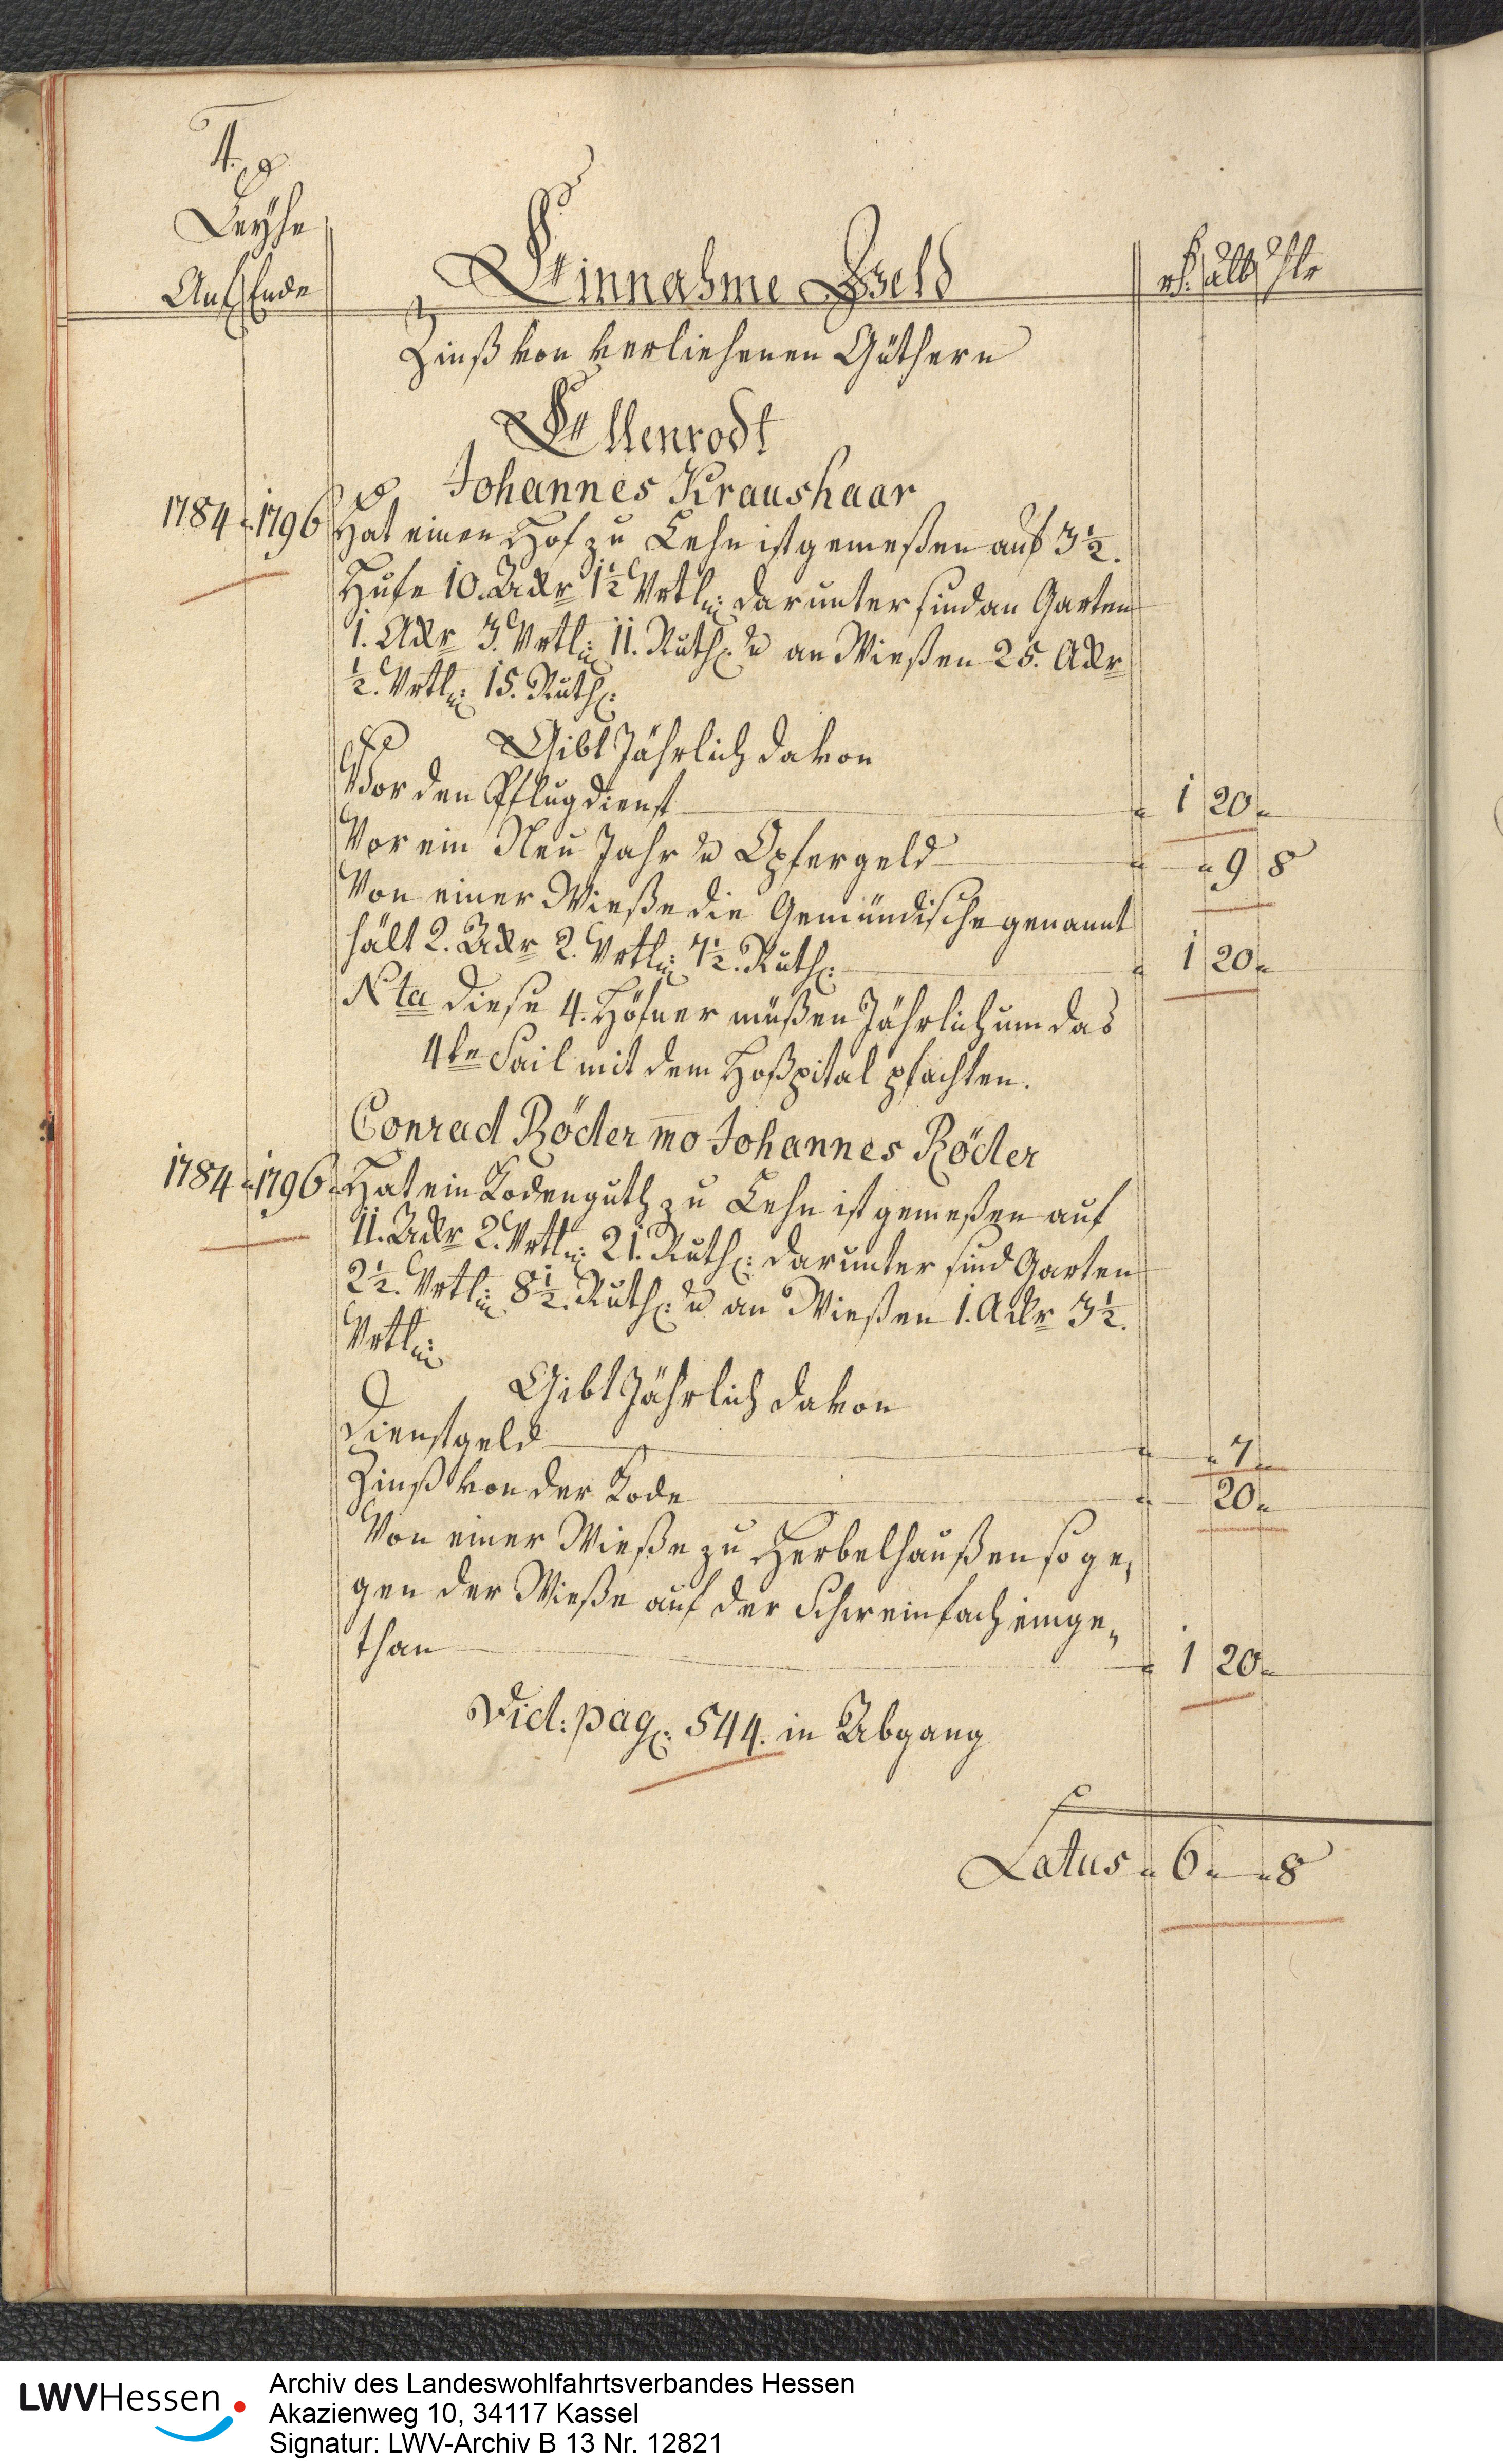 4.
Leyhe
Anf Ende
Einnahme Geld
rf. alb hlr
Zinß von verliehenen Güthern
Ellenrodt
Johannes Kraushaar
1784 - 1796 Hat einen Hof zu Lehn ist gemeßen auf 3½.
Hufe 10. Ackr 1½ Vrtl: darunter sind an Garten
1. Ackr 3. Vrtl: 11. Ruth: u an Wießen 25. Ackr
½. Vrtl: 15. Ruth:
Gibt Jährlich davon
Vor den Pflugdienst " 1 20 "
Vor ein Neu Jahr u Opfergeld " " 9 8
Von einer Wieße die Gemündische genannt
hält 2. Ackr 2. Vrtl: 7½. Ruth: " 1 20 "
Nta diese 4. Höfner müßen Jährlich um das
4te Sail mit dem Hoßpital pfachten.
Conrad Röder mo Johannes Röder
1784 - 1796 Hat ein Kodenguth zu Lehn ist gemeßen auf
11. Ackr 2. Vrtl: 21. Ruth: darunter sind Garten
2½. Vrtl: 8½. Ruth: u an Wießen 1. Ackr 3½.
Vrtl:
Gibt Jährlich davon
Dienstgeld " " 7 "
Zinß von der Kode " 20 "
Von einer Wieße zu Herbelhaußen so ge,
gen der Wieße auf der Schweinfach einge,
than " 1 20 "
Vid: pag: 544. in Abgang
Latus " 6 " " 8
LWVHessen
Archiv des Landeswohlfahrtsverbandes Hessen
Akazienweg 10, 34117 Kassel
Signatur: LWV-Archiv B 13 Nr. 12821